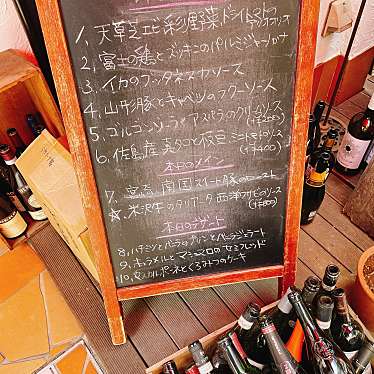 1、天草芝エビと彩り野菜 ドライトマトの
2、富士の鶏とズッキーニのパルミジャーナ
3、イカのプッタネスカソース
4、山形豚とキャベツのラグーソース
5、ゴルゴンゾーラとアスパラのクリームソース
6、佐島産真ダコと枝豆 ミニトマトのソース
(+¥400)
本日のメイン
7、宮崎 南国スイート豚のロースト
☆、米沢牛のタリアータ 西洋ワサビのソース
本日のデザート
8、ハチミツとバニラのプリンとバニラジェラート
9、キャラメルとマシュマロのセミフレッド
10、マスカルポーネとくるみつのケーキ